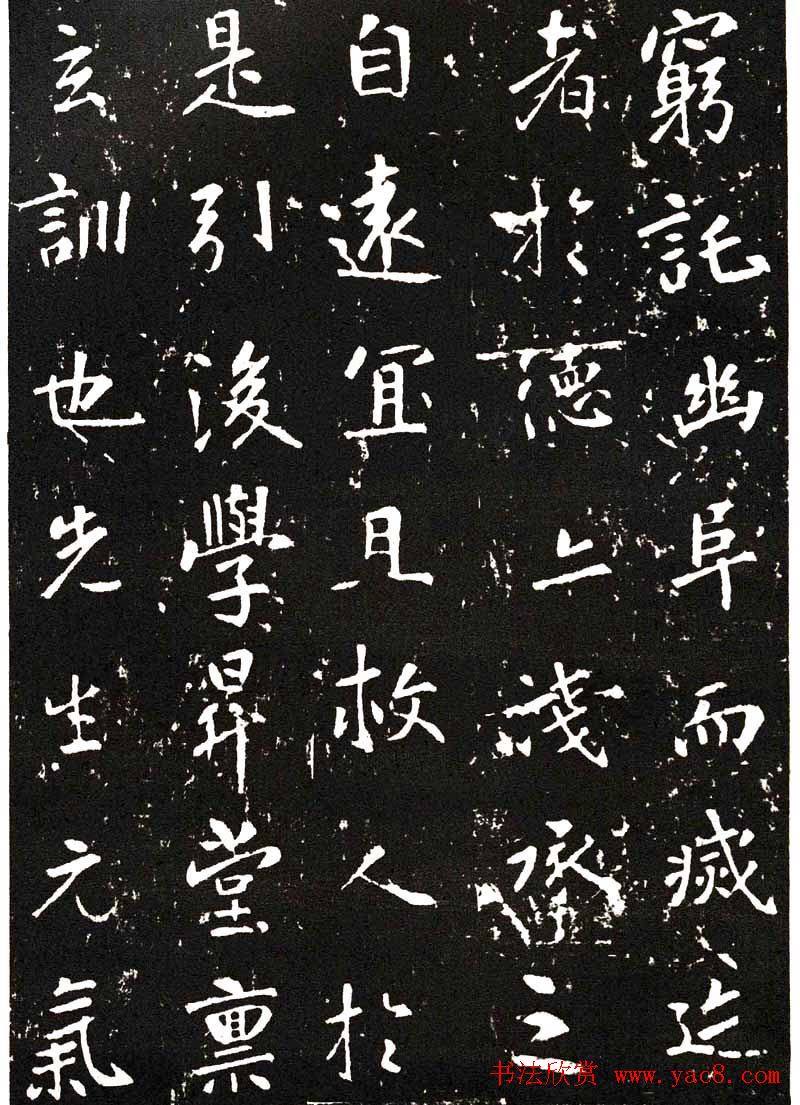 窮託幽阜而滅迹
者於德上淺承之
自遠宜且救人於
是引後學昇堂禀
玄訓也先生元氣
书法欣赏 www.yac8.com